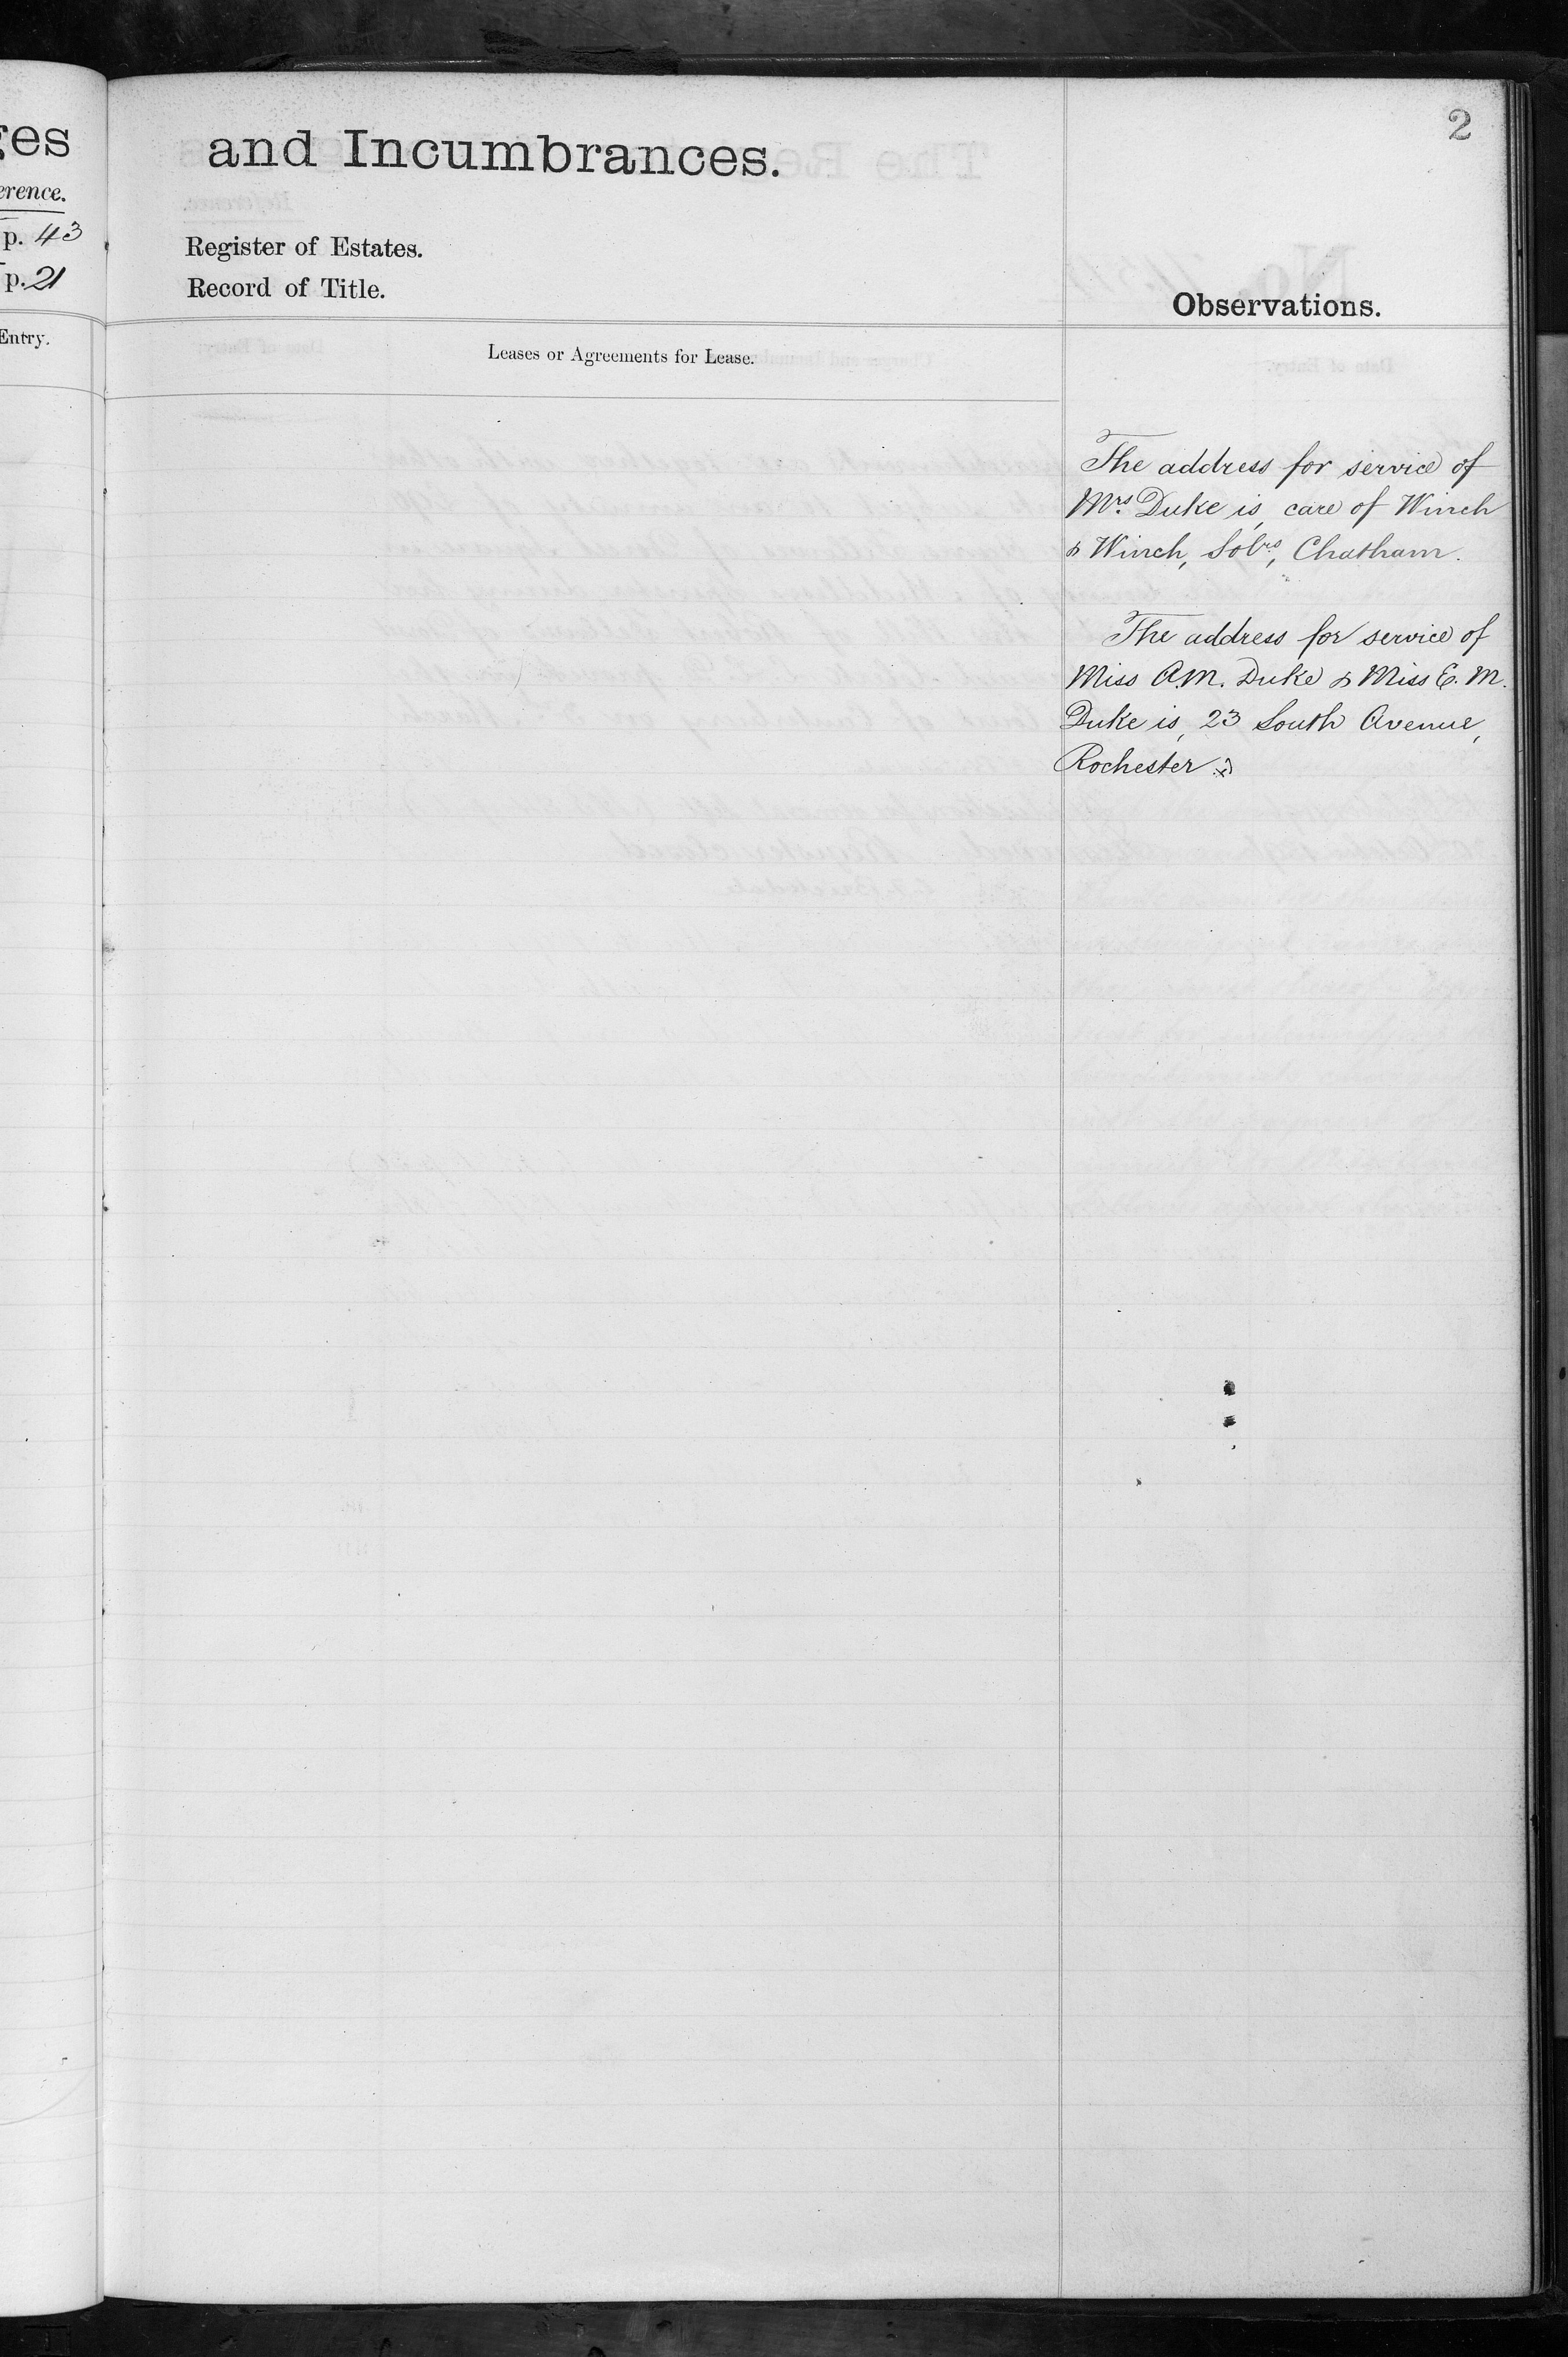 ges
erence.
p. 43
p. 21
Entry.
2
and Incumbrances.
Register of Estates.
Record of Title.
Observations.
Leases or Agreements for Lease.
The address for service of
Mrs. Duke is, care of Winch
& Winch, Solrs, Chatham.
The address for service of
Miss A.M. Duke & Miss E. M.
Duke is, 23 South Avenue,
Rochester